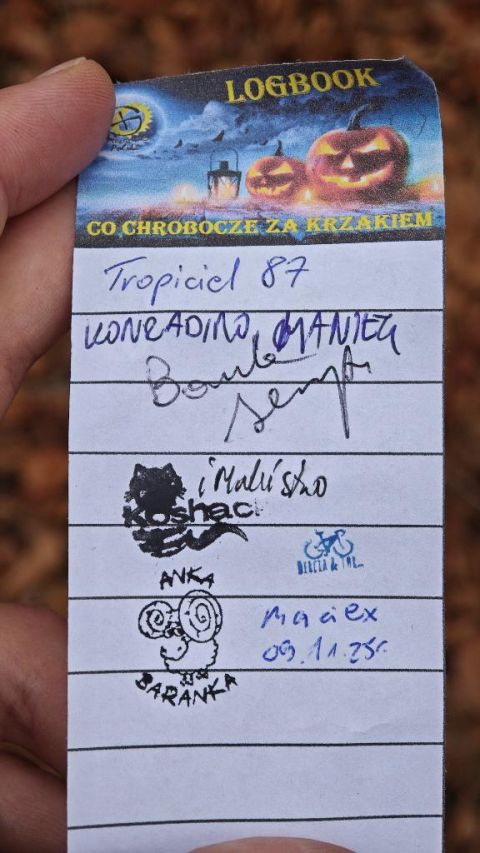 LOGBOOK
CO CHROBOCZE ZA KRZAKIEM
Tropiciel 87
KONRADINO, MANIEK
i Maliszko
Koshac
ANKA
BARANKA
Maciex
09.11.25r